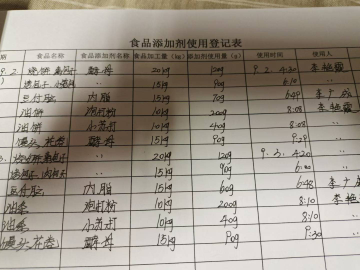 食品添加剂使用登记表
期 食品名称 食品添加剂名称 食品加工量(kg) 添加剂使用量(g) 使用时间 使用人
9.2 酵母 20kg 120g 9.2. 4:20 李艳霞
15kg 90g 6:10 〃
豆付脑 内脂 15kg 60g 6:48 李广
油饼 泡打粉 10kg 20g 8:08 李艳霞
油饼 小苏打 10kg 40g 8:08 〃
馒头,花卷 酵母 15kg 90g 9:29 〃
酵母 20kg 120g 9.3. 4:20 〃
15kg 90g 6:00 〃
豆付脑 内脂 15kg 60g 6:48 李广
油条 泡打粉 10kg 20g 8:10 李艳
油条 小苏打 10kg 40g 8:10 〃
馒头,花卷 酵母 15kg 90g 9:30 〃